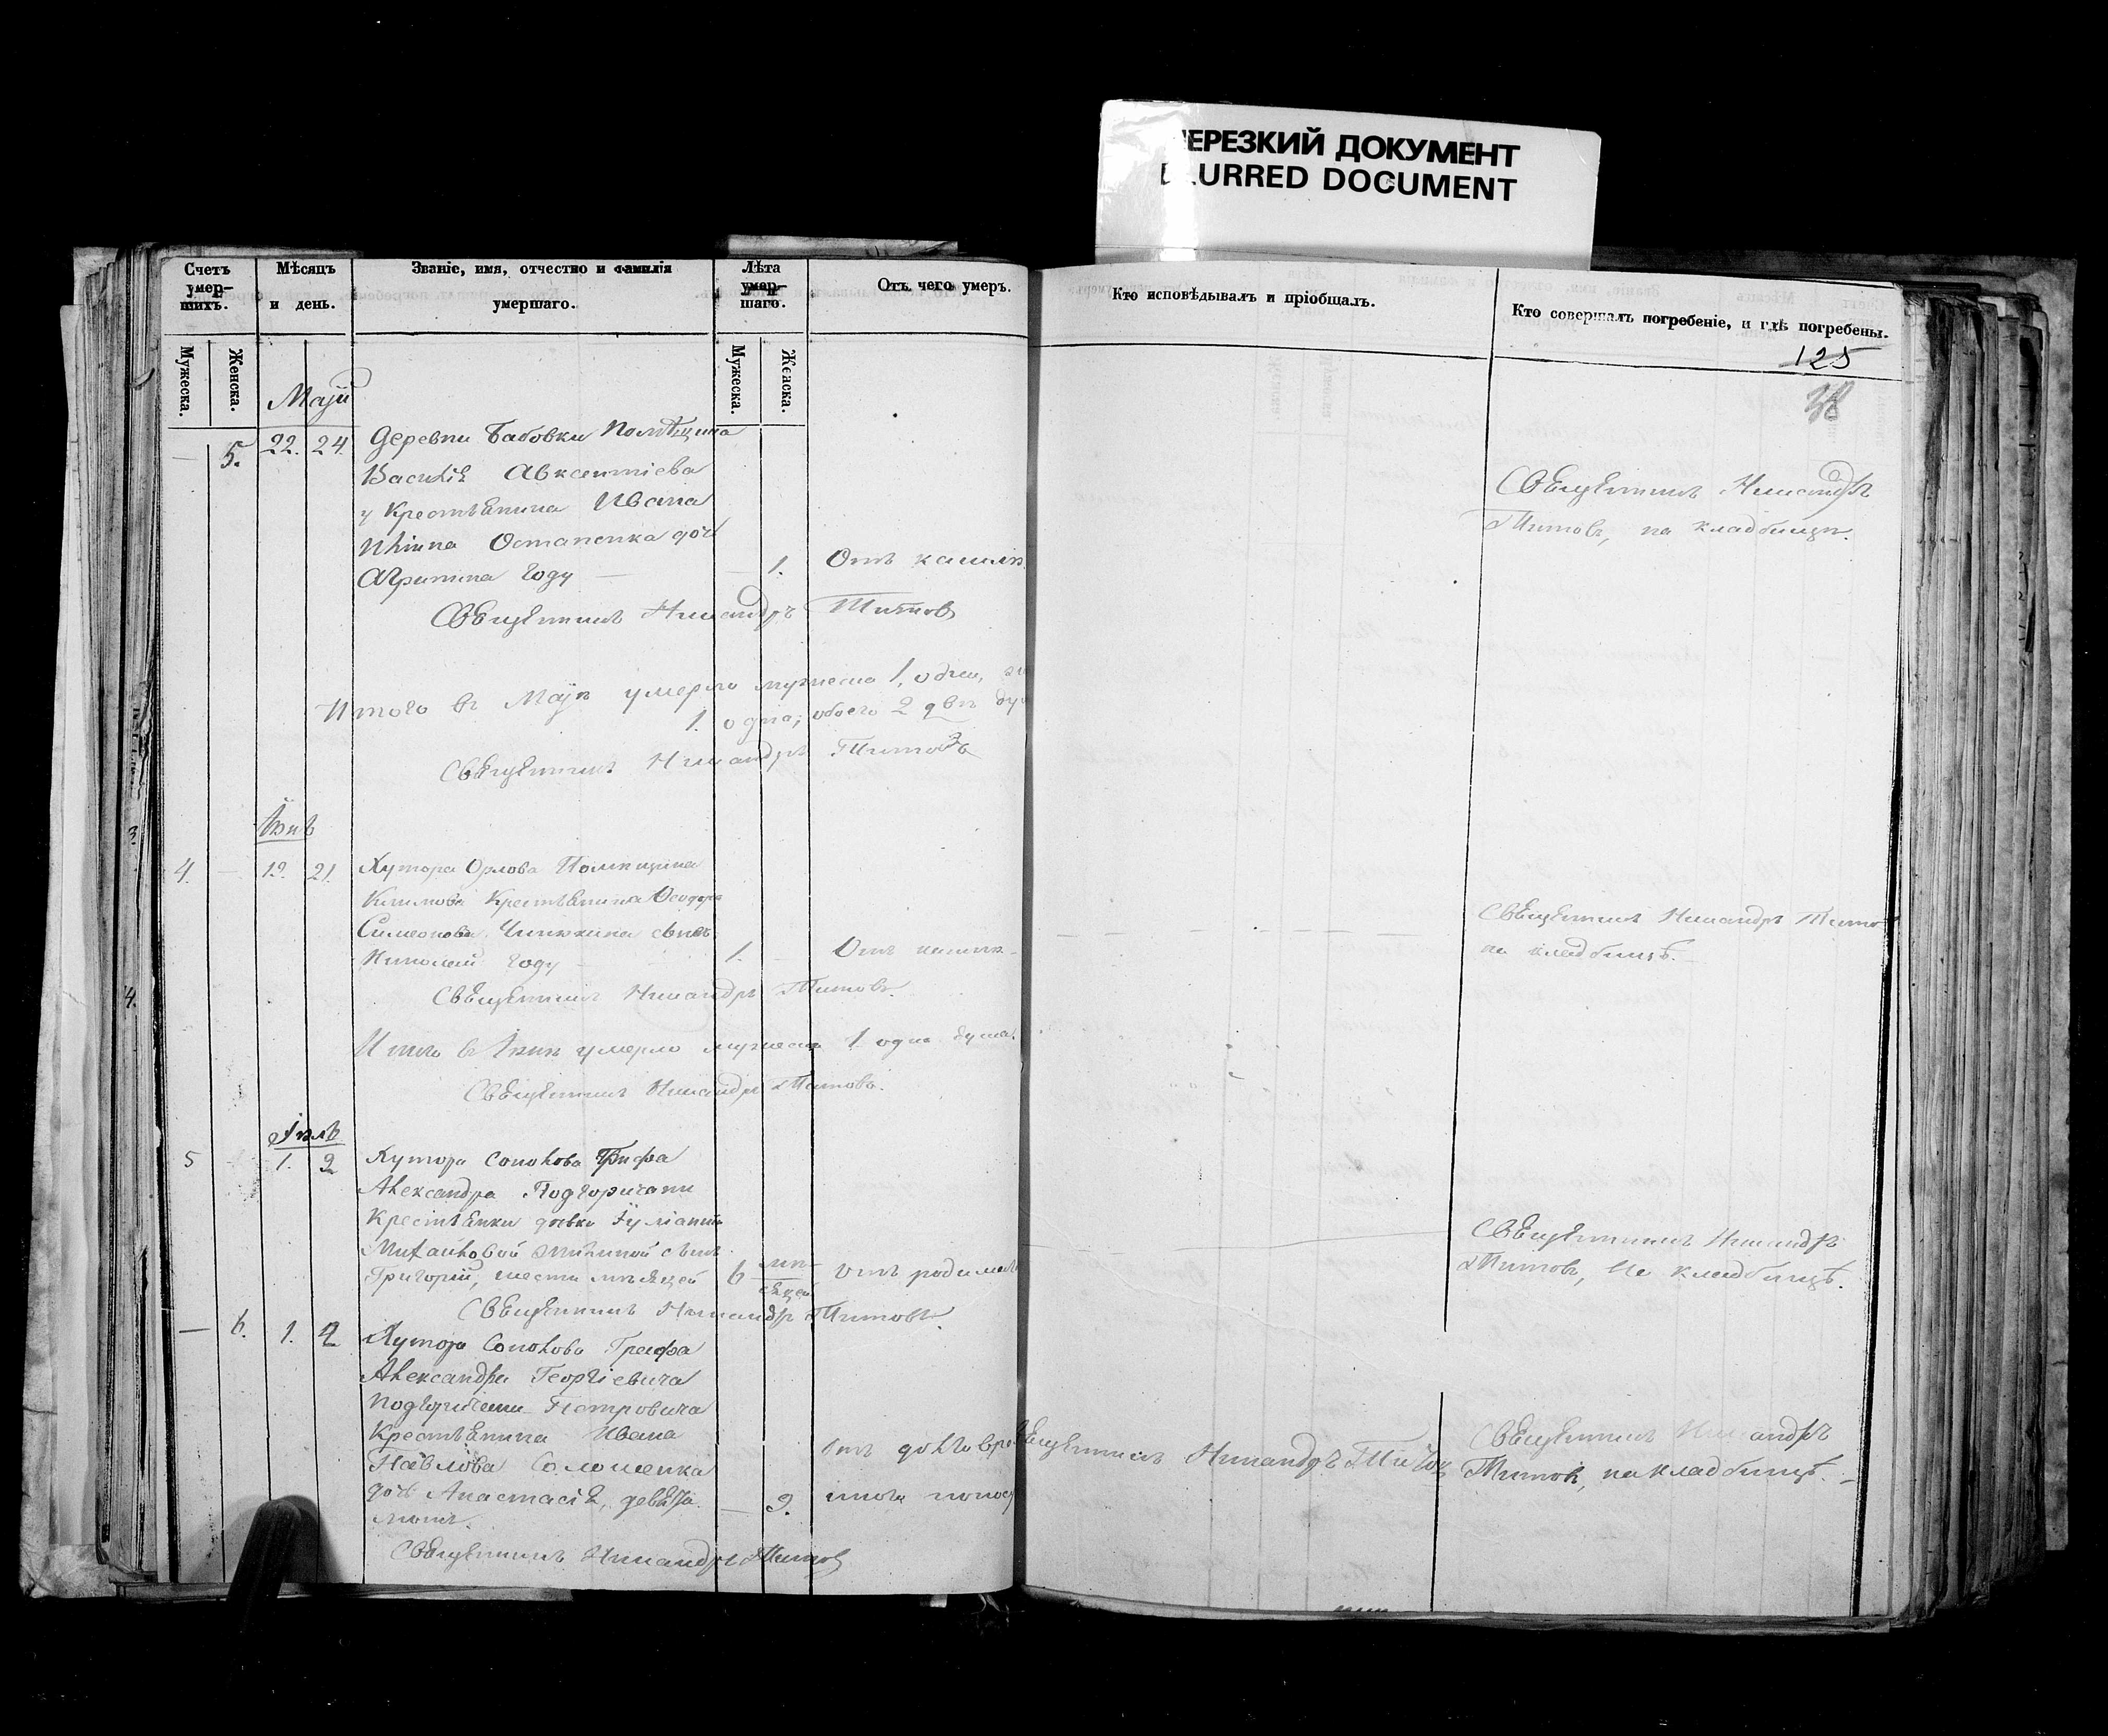 НЕРЕЗКИЙ ДОКУМЕНТ
BLURRED DOCUMENT
Счетъ умер-шихъ.
Мѣсяцъ и день.
Званіе, имя, отчество и фамилія умершаго.
Лѣта умер-шаго.
Отъ чего умеръ.
Кто исповѣдывалъ и пріобщалъ.
Кто совершалъ погребеніе, и гдѣ погребены.
Мужеска.
Женска.
Мужеска.
Женска.
125
38
Маій
— 5. 22. 24. Деревни Бабовки Помѣщика
Василія Авксентіева
Крестьянина Ивана
Ильина Остапенка доч
Агрипина году — 1. Отъ кашля
Священникъ Никандръ Титовъ, на кладбищѣ.
Священникъ Никандръ Титовъ
Итого въ Маіѣ умерло мужеска 1. одинъ,
1. одна; обоего 2 двѣ
Священникъ Никандръ Титовъ
Іюнь
4. — 19. 21. Хутора Орлова Помѣщика
Климова Крестьянина Ѳеодора
Симеонова сынъ
Николай году — 1. — Отъ кашля
Священникъ Никандръ
на кладбищѣ.
Священникъ Никандръ Титовъ.
Итого въ Іюнѣ умерло мужеска 1 одна душа.
Священникъ Никандръ Титовъ.
Іюль
5 1. 2 Хутора Графа
Александра Подгоричани
Крестьянки дѣвки Іуліаніи
Михайловой сынъ
Григорій, шести мѣсяцей 6 мѣ-сяцей отъ родимца
Священникъ Никандръ
Титовъ, на кладбищѣ.
Священникъ Никандръ Титовъ.
— 6. 1. 2 Хутора Графа
Александра Георгіевича
Подгоричани Петровича
Крестьянина Ивана
Павлова Соломенка
дочь Анастасія, девяти — 9.
лѣтъ.
отъ
поноса
Священникъ Никандръ Титовъ
Священникъ Никандръ
Титовъ, на кладбищѣ. —
Священникъ Никандръ Титовъ